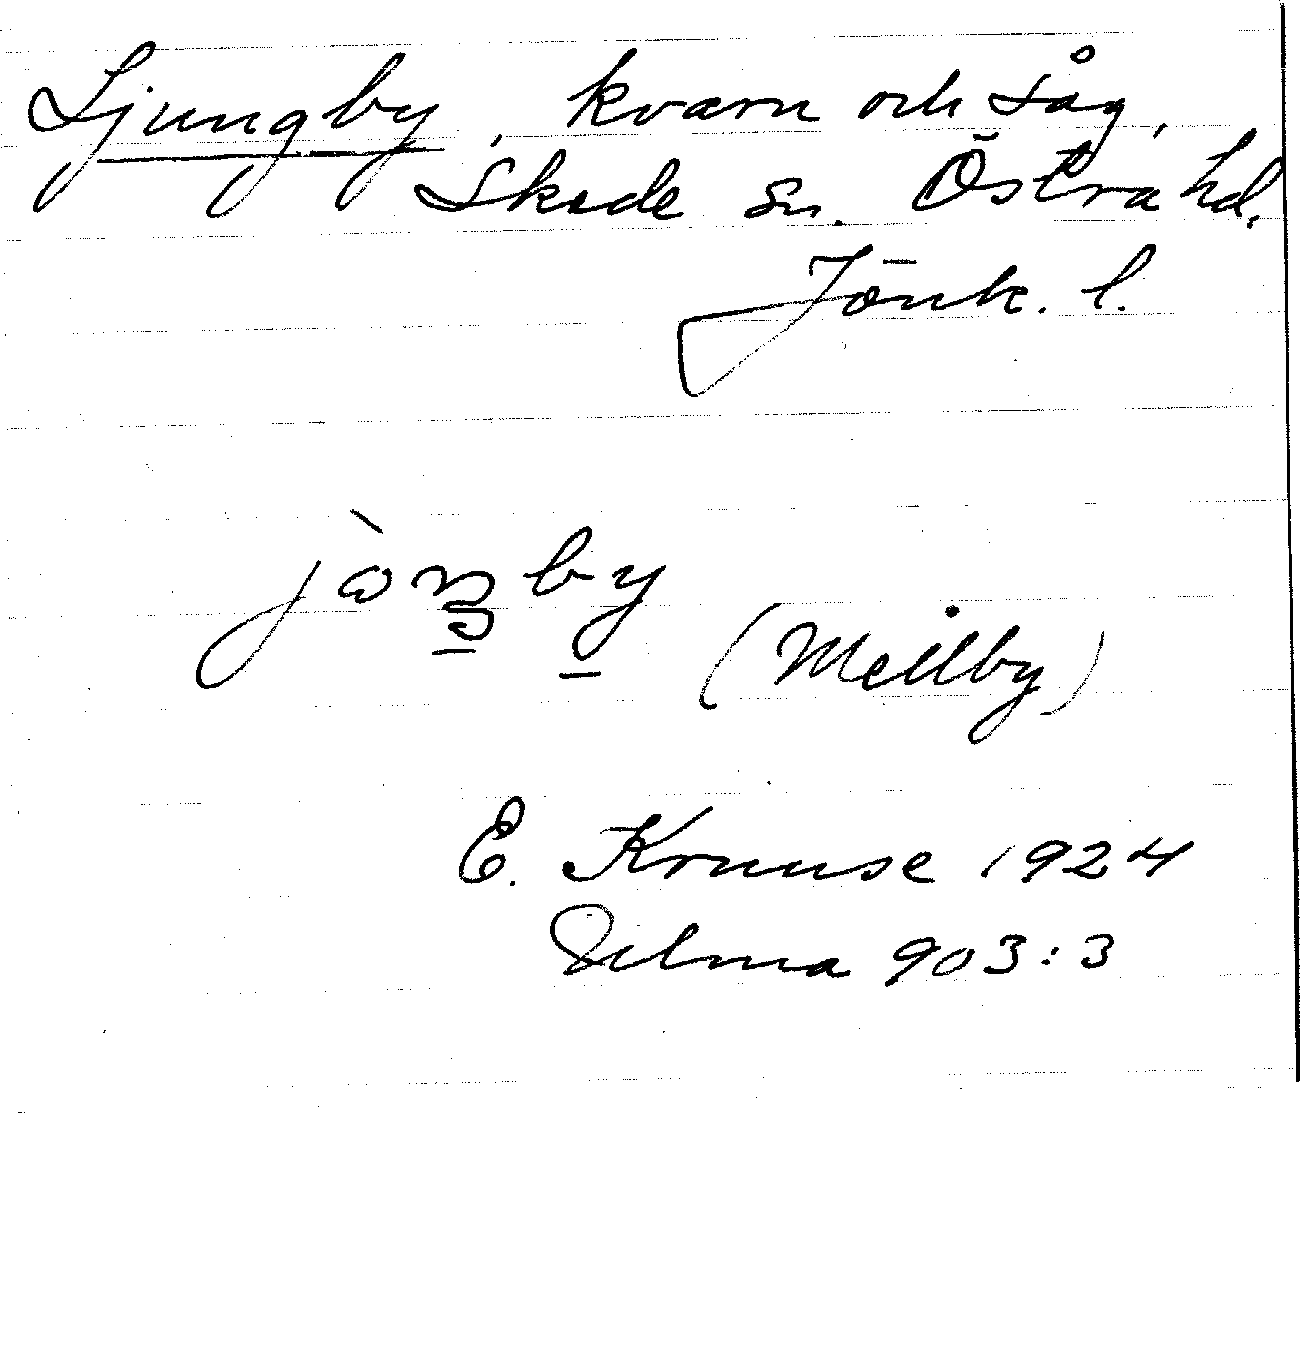 Ljungby, kvarn och såg,
Skede sn. Östra hd.
Jönk. l.
(Mellby)
E. Kruuse 1924
Ulma 903:3